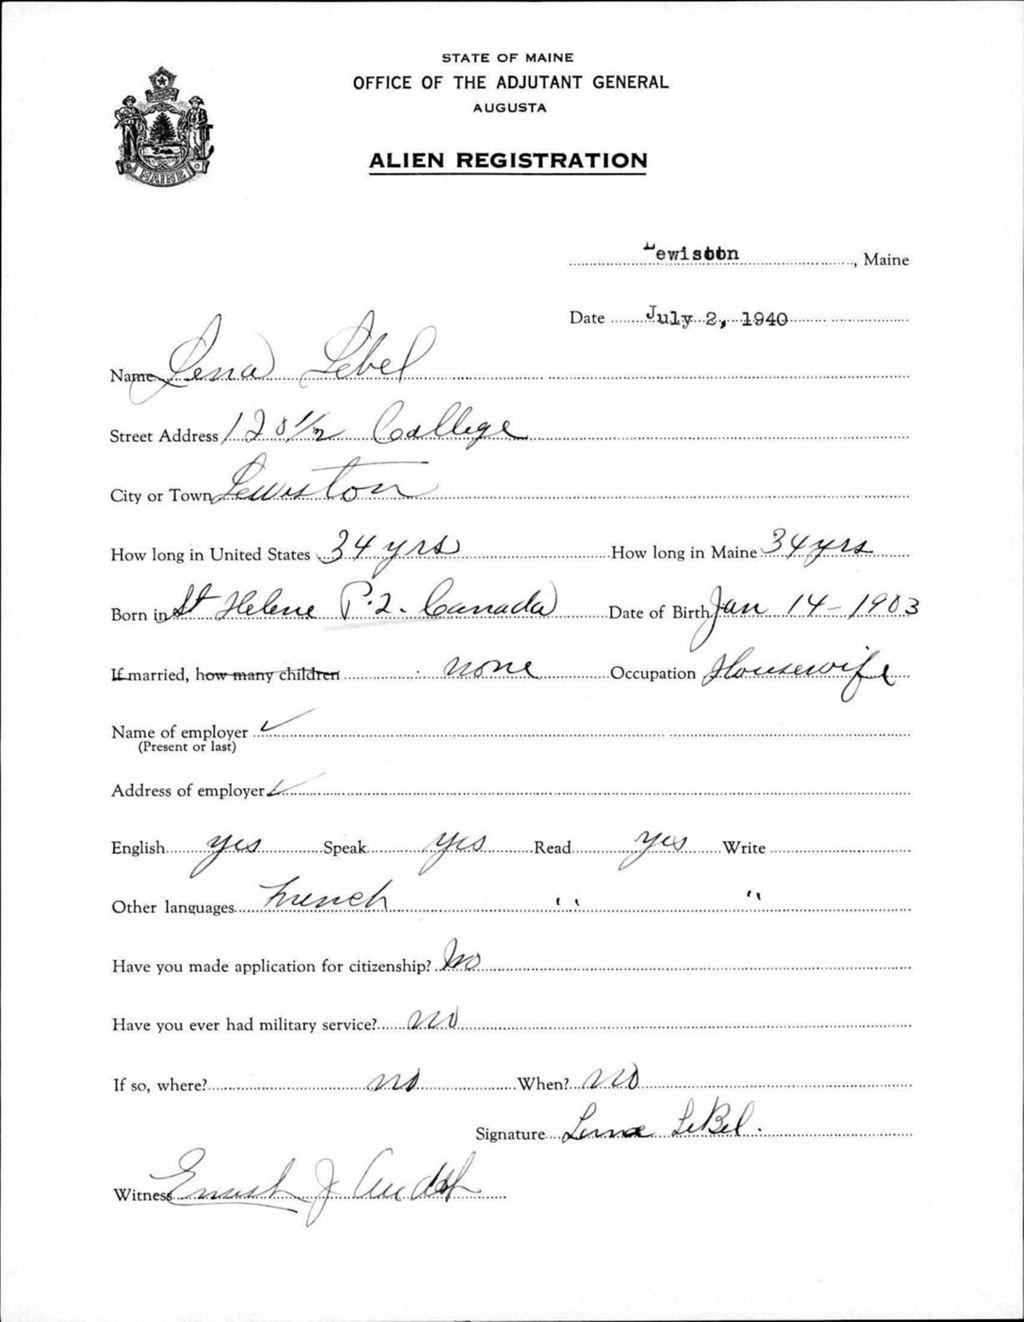 STATE OF MAINE
OFFICE OF THE ADJUTANT GENERAL
AUGUSTA
ALIEN REGISTRATION
MAINE
Lewiston, Maine
Date July 2, 1940
Name Lena Lebel
Street Address 120 1/2 Callege
City or Town Lewiston
How long in United States 34 yrs How long in Maine 34 yrs
Born in St Helene P.Q. Canada Date of Birth Jan 14-1903
If married, how many children none Occupation Housewife
Name of employer ✓
(Present or last)
Address of employer ✓
English yes Speak yes Read yes Write
Other languages French " "
Have you made application for citizenship? No
Have you ever had military service? no
If so, where? no When? no
Signature Lena LeBel.
Witness J